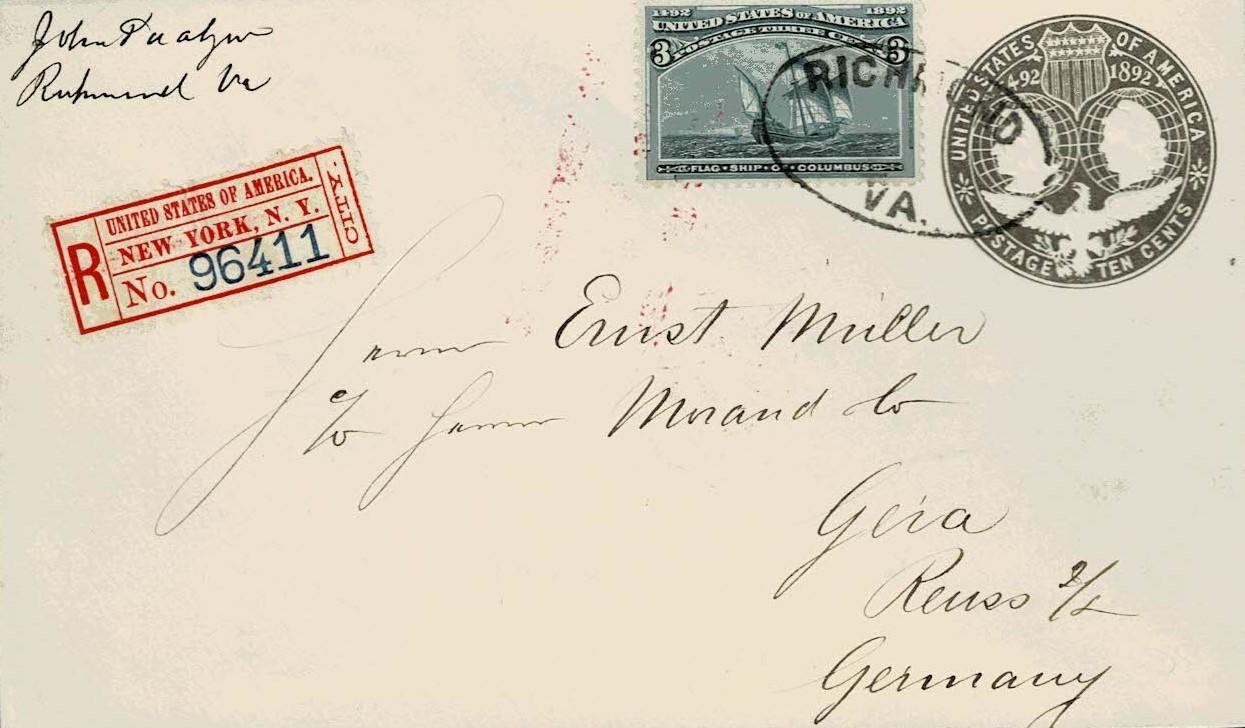 John
Richmond Va
1492 1892
UNITED STATES OF AMERICA
3 POSTAGE THREE CENTS 3
FLAG • SHIP • OF • COLUMBUS
RICHMOND
VA.
UNITED STATES OF AMERICA
1492 1892
POSTAGE TEN CENTS
R
UNITED STATES OF AMERICA.
NEW YORK, N. Y.
No. 96411
CITY.
Herrn Ernst Müller
c/o Herrn Morand Co
Gera
Reuss
Germany